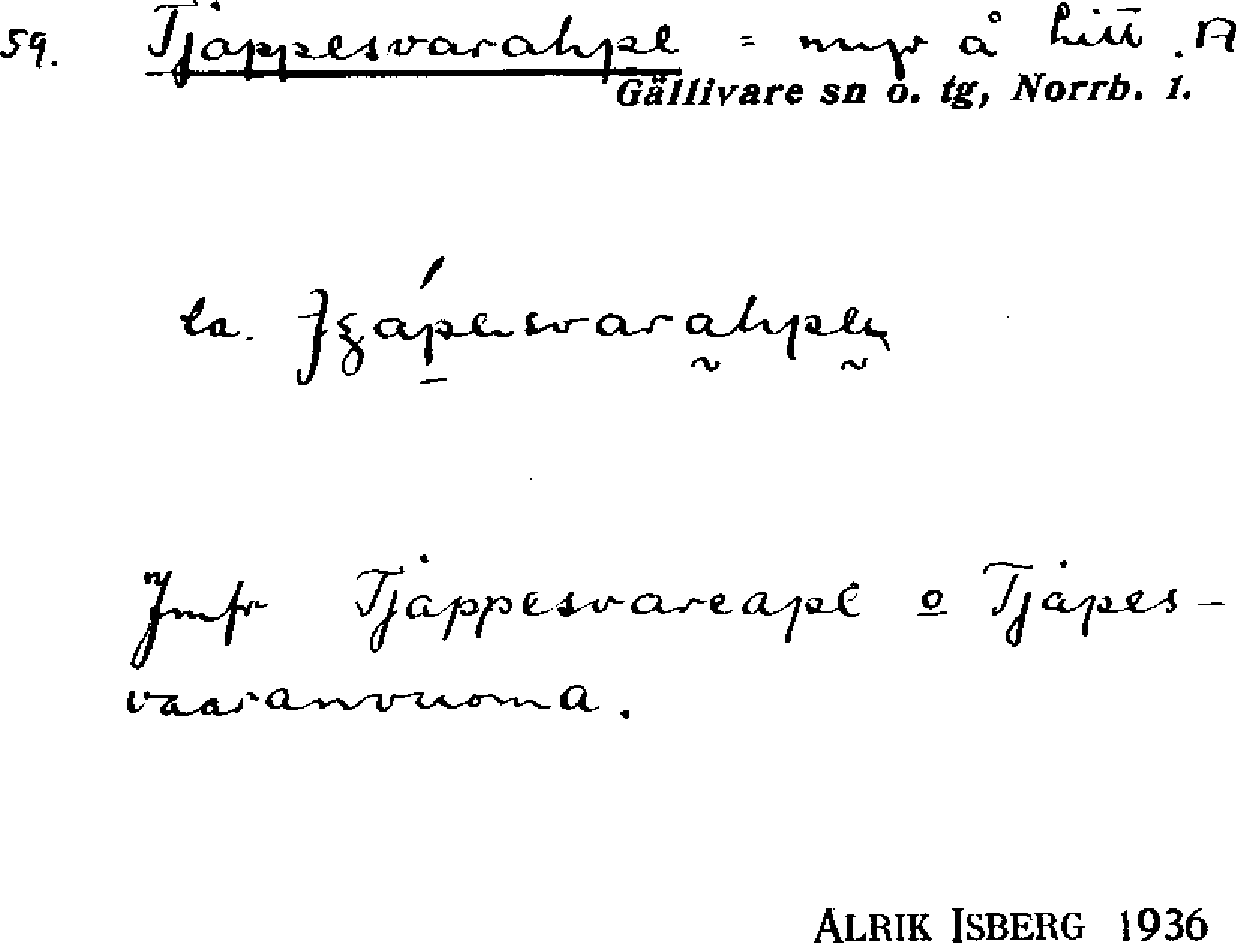 59. Tjappesvarahpe = myr å litt. A
Gällivare sn o. tg, Norrb. l.
la.
Jmfr Tjappesvareape o Tjapes-
vaaranvuoma.
ALRIK ISBERG 1936